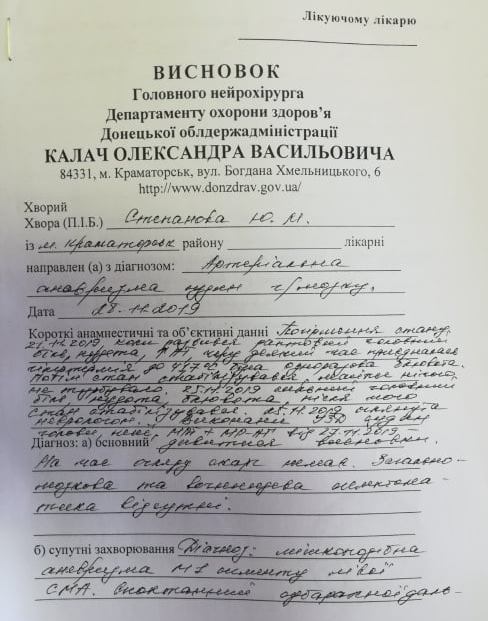 Лікуючому лікарю
ВИСНОВОК
Головного нейрохірурга
Департаменту охорони здоров’я
Донецької облдержадміністрації
КАЛАЧ ОЛЕКСАНДРА ВАСИЛЬОВИЧА
84331, м. Краматорськ, вул. Богдана Хмельницького, 6
http://www.donzdrav.gov.ua/
Хворий
Хвора (П.І.Б.) Степанова Ю. М.
із м. Краматорськ району лікарні
направлен (а) з діагнозом: Артеріальна
аневризма судин г/мозку.
Дата 28.11.2019
Короткі анамнестичні та об’єктивні дані Погіршення стану
21.11.2019, коли розвився раптовий головний
біль, нудота, через деякий час приєдналася
гіпертермія до була одноразова блювота.
Потім стан стабілізувався,
не турбувало. 25.11.2019 головний
біль, нудота, блювота, після чого
стан стабілізувався. 25.11.2019 оглянута
неврологом. Виконані УЗД судин
голови, шиї, МРТ + від 27.11.2019 –
Діагноз: а) бсновний
На час огляду скарг немає. Загально-
мозкова та вогнищева симптома-
тика відсутні.
б) супутні захворювання Діагноз: мішкоподібна
аневризма М1 сегменту лівої
СМА. Спонтанний субарахноїдаль-